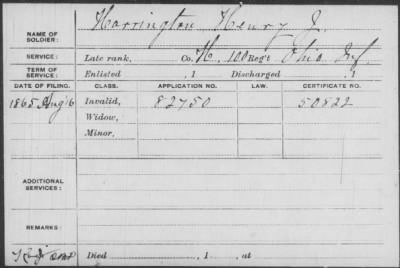 NAME OF SOLDIER: Harrington Henry J.
SERVICE: Late rank, Co. H, 100 Reg't Ohio Inf.
TERM OF SERVICE: Enlisted , 1 Discharged , 1
DATE OF FILING. CLASS. APPLICATION NO. LAW. CERTIFICATE NO.
1865 Aug 16 Invalid, 82750 50822
Widow,
Minor,
ADDITIONAL SERVICES:
REMARKS:
Died , 1 , at